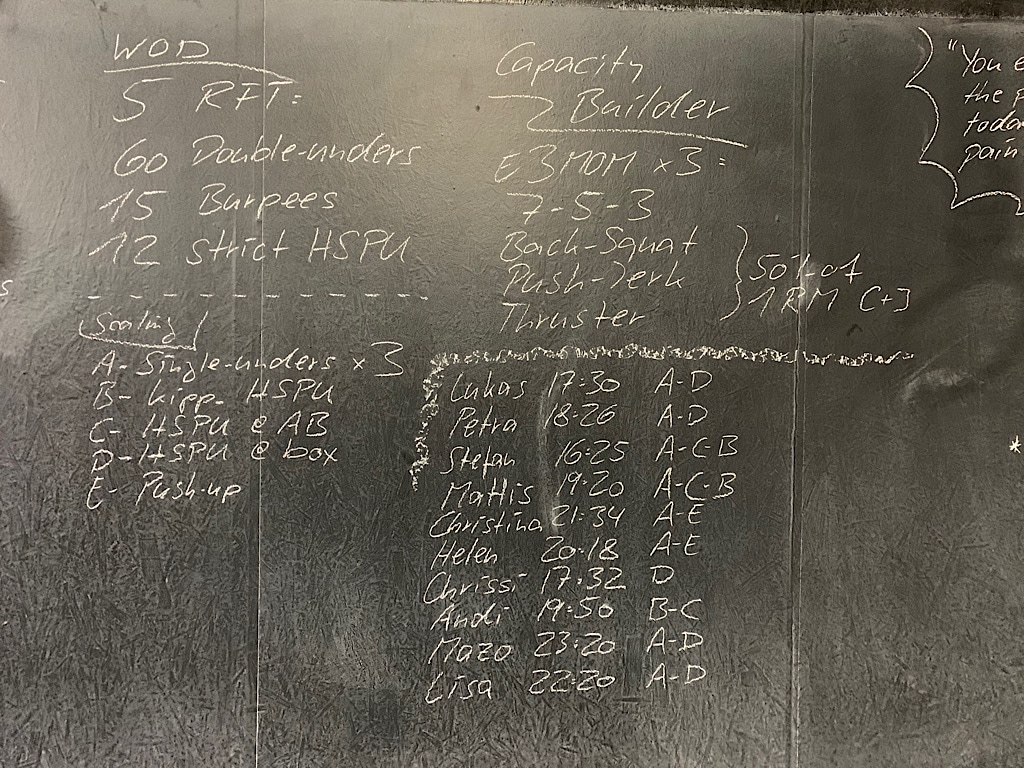 WOD
5 RFT:
60 Double-unders
15 Burpees
12 strict HSPU
Scaling
A- Single-unders x 3
B- kipp. HSPU
C- HSPU @ AB
D- HSPU @ box
E- Push-up
Capacity
Builder
E3MOM x3:
7-5-3
Back-Squat
Push-Jerk
Thruster
50% of
1RM [+]
Lukas 17:30 A-D
Petra 18:26 A-D
Stefan 16:25 A-C-B
Mattis 19:20 A-C-B
Christina 21:34 A-E
Helen 20:18 A-E
Chrissi 17:32 D
Andi 19:50 B-C
Mazo 23:20 A-D
Lisa 22:20 A-D
"You
the
pain
*